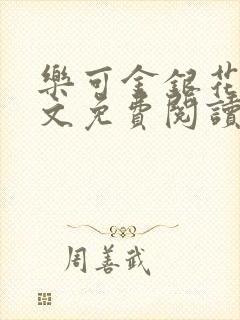 樂可金銀花
文免費閱讀
周善武